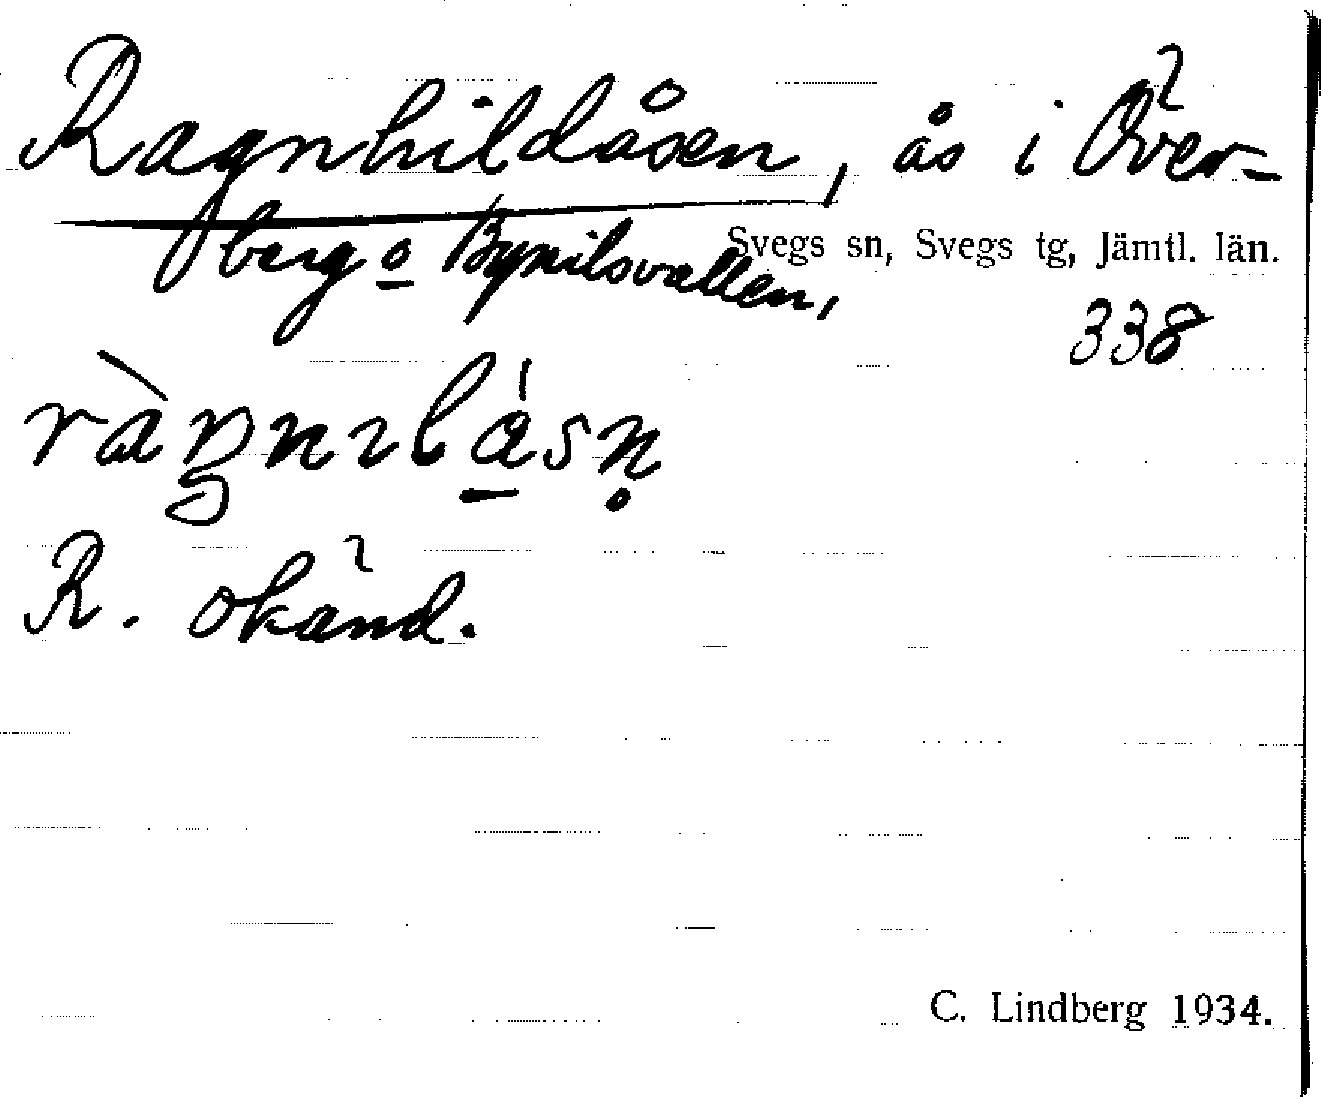 Ragnhildåsen, ås i Över-
berg o Bynilsvallen,
Svegs sn, Svegs tg, Jämtl. län.
338
ràŋnılásn̥
R. okänd.
C. Lindberg 1934.